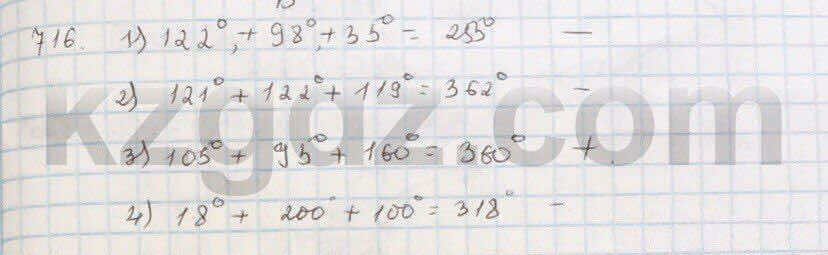 716. 1) 122° + 98° + 35° = 255° —
2) 121° + 122° + 119° = 362° -
3) 105° + 95° + 160° = 360° +
4) 18° + 200° + 100° = 318° -
kzgdz.com